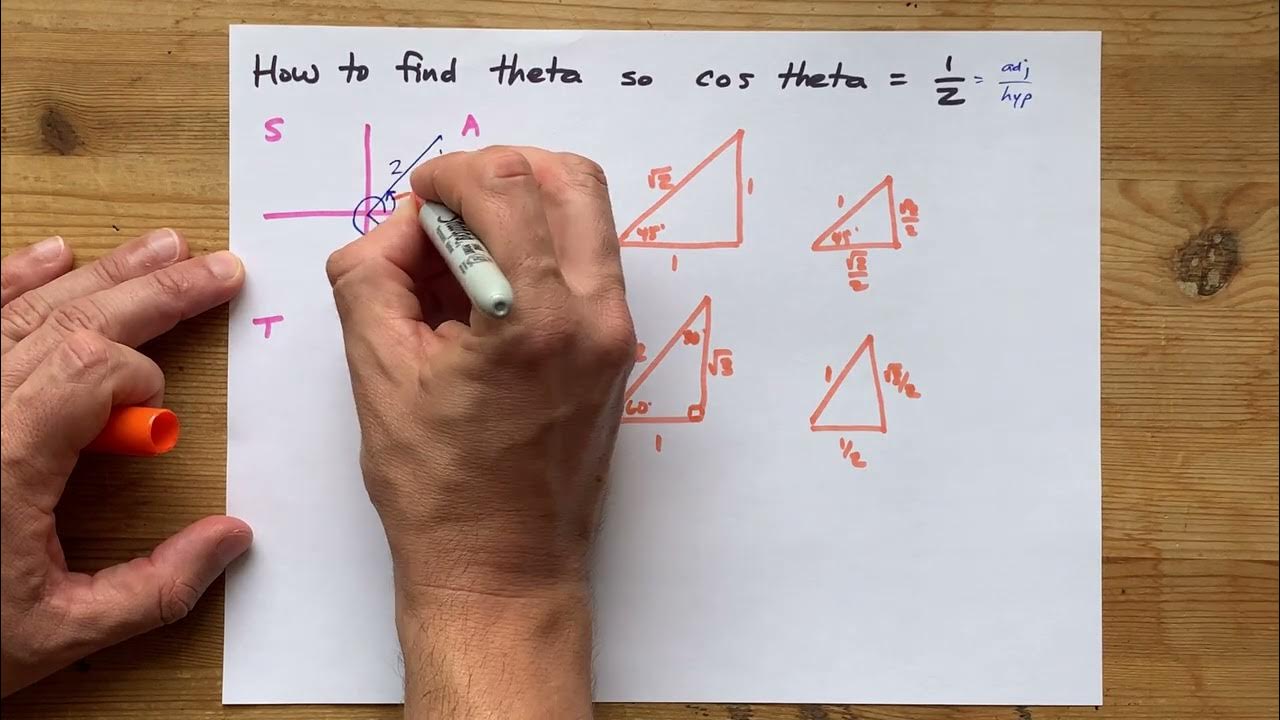 How to find theta so cos theta = 1/2 = adj/hyp
S
A
2
√2
1
45°
1
1
√2/2
45°
√2/2
T
30°
2
√3
60°
1
1
√3/2
1/2